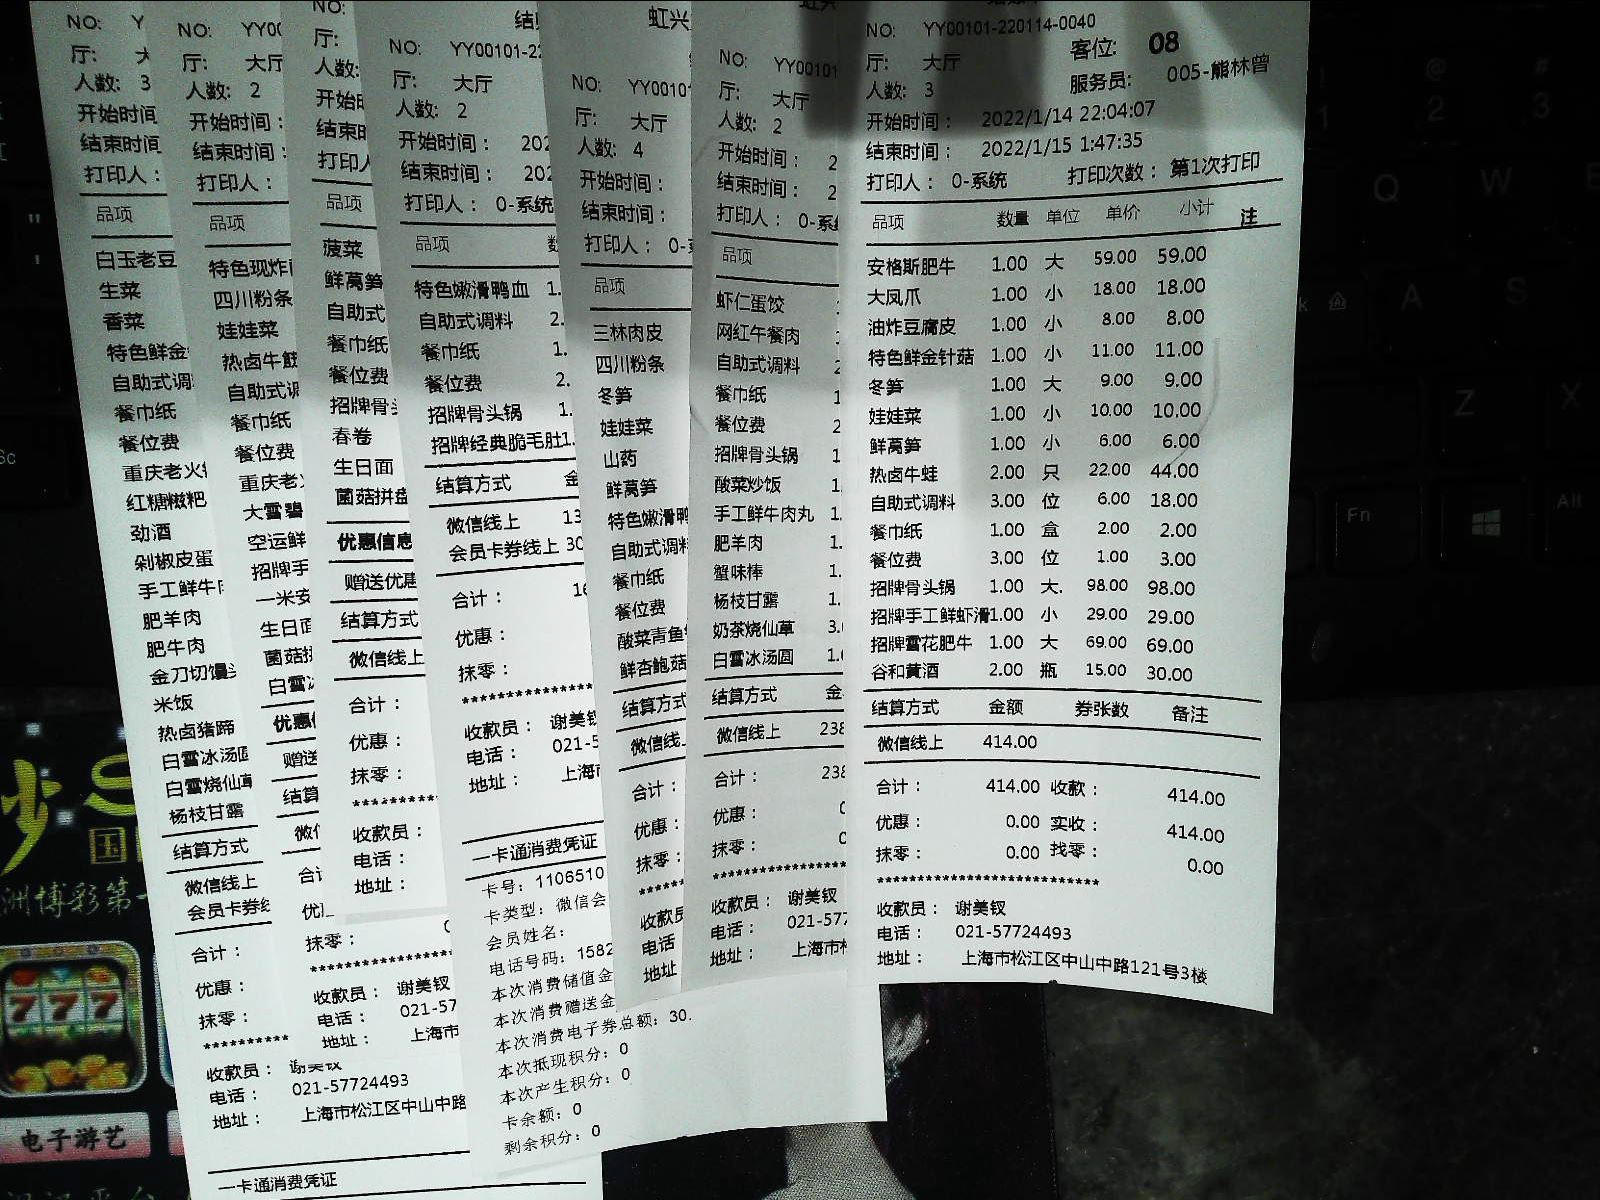 NO: Y
厅:
人数: 3
开始时间
结束时间
打印人：
品项
白玉老豆
生菜
香菜
特色鲜金
自助式调
餐巾纸
餐位费
重庆老火
红糖糍粑
劲酒
剁椒皮蛋
手工鲜牛
肥羊肉
肥牛肉
金刀切馒
米饭
热卤猪蹄
白雪冰汤圆
白雪烧仙草
杨枝甘露
结算方式
微信线上
会员卡券线
合计：
优惠：
抹零：
**********
收款员：
电话： 021-57724493
地址： 上海市松江区中山中路
一卡通消费凭证
NO: YY00
厅: 大厅
人数: 2
开始时间：
结束时间：
打印人：
品项
特色现炸
四川粉条
娃娃菜
热卤牛
自助式调
餐巾纸
餐位费
重庆老
大雪碧
空运鲜
招牌手
一米安
生日面
菌菇拼
白雪冰
优惠信
赠送
结算
微信
合计
优
抹零：
收款员： 谢美钗
电话： 021-57
地址： 上海市
NO:
厅:
人数:
开始时
结束时
打印人
品项
菠菜
鲜莴笋
自助式
餐巾纸
餐位费
招牌骨头
春卷
生日面
菌菇拼盘
优惠信息
赠送优惠
结算方式
微信线上
合计：
优惠：
抹零：
**********
收款员：
电话：
地址：
结账
NO: YY00101-22
厅: 大厅
人数: 2
开始时间： 202
结束时间： 202
打印人： 0-系统
品项 数
特色嫩滑鸭血 1.
自助式调料 2.
餐巾纸 1.
餐位费 2.
招牌骨头锅 1.
招牌经典脆毛肚1.
结算方式 金
微信线上 13
会员卡券线上 30
合计： 16
优惠：
抹零：
****************
收款员： 谢美钗
电话： 021-5
地址： 上海市
一卡通消费凭证
卡号：1106510
卡类型：微信会
会员姓名：
电话号码：1582
本次消费储值金
本次消费赠送金
本次消费电子券总额：30.
本次抵现积分：0
本次产生积分：0
卡余额：0
剩余积分：0
虹兴
NO: YY0010
厅: 大厅
人数: 4
开始时间：
结束时间：
打印人： 0-
品项
三林肉皮
四川粉条
冬笋
娃娃菜
山药
鲜莴笋
特色嫩滑鸭
自助式调料
餐巾纸
餐位费
酸菜青鱼
鲜杏鲍菇
结算方式
微信线上
合计：
优惠：
抹零：
收款员
电话
地址
虹兴
NO: YY00101
厅: 大厅
人数: 2
开始时间： 2
结束时间： 2
打印人： 0-系
品项
虾仁蛋饺
网红午餐肉
自助式调料 2
餐巾纸 1
餐位费 2
招牌骨头锅 1
酸菜炒饭 1
手工鲜牛肉丸 1.
肥羊肉 1.
蟹味棒 1.
杨枝甘露 1.
奶茶烧仙草 3.
白雪冰汤圆 1.0
结算方式 金
微信线上 238
合计： 238
优惠： 0
抹零： 0
********************
收款员： 谢美钗
电话： 021-577
地址： 上海市松
NO: YY00101-220114-0040
厅: 大厅 客位: 08
人数: 3 服务员: 005-熊林曾
开始时间： 2022/1/14 22:04:07
结束时间： 2022/1/15 1:47:35
打印人： 0-系统 打印次数： 第1次打印
品项 数量 单位 单价 小计 注
安格斯肥牛 1.00 大 59.00 59.00
大凤爪 1.00 小 18.00 18.00
油炸豆腐皮 1.00 小 8.00 8.00
特色鲜金针菇 1.00 小 11.00 11.00
冬笋 1.00 大 9.00 9.00
娃娃菜 1.00 小 10.00 10.00
鲜莴笋 1.00 小 6.00 6.00
热卤牛蛙 2.00 只 22.00 44.00
自助式调料 3.00 位 6.00 18.00
餐巾纸 1.00 盒 2.00 2.00
餐位费 3.00 位 1.00 3.00
招牌骨头锅 1.00 大. 98.00 98.00
招牌手工鲜虾滑1.00 小 29.00 29.00
招牌雪花肥牛 1.00 大 69.00 69.00
谷和黄酒 2.00 瓶 15.00 30.00
结算方式 金额 券张数 备注
微信线上 414.00
合计： 414.00 收款： 414.00
优惠： 0.00 实收： 414.00
抹零： 0.00 找零： 0.00
******************************
收款员： 谢美钗
电话： 021-57724493
地址： 上海市松江区中山中路121号3楼
洲博彩第一
777
电子游艺
@
2
#
3
Q
W
E
A
S
Z
X
Fn
Alt